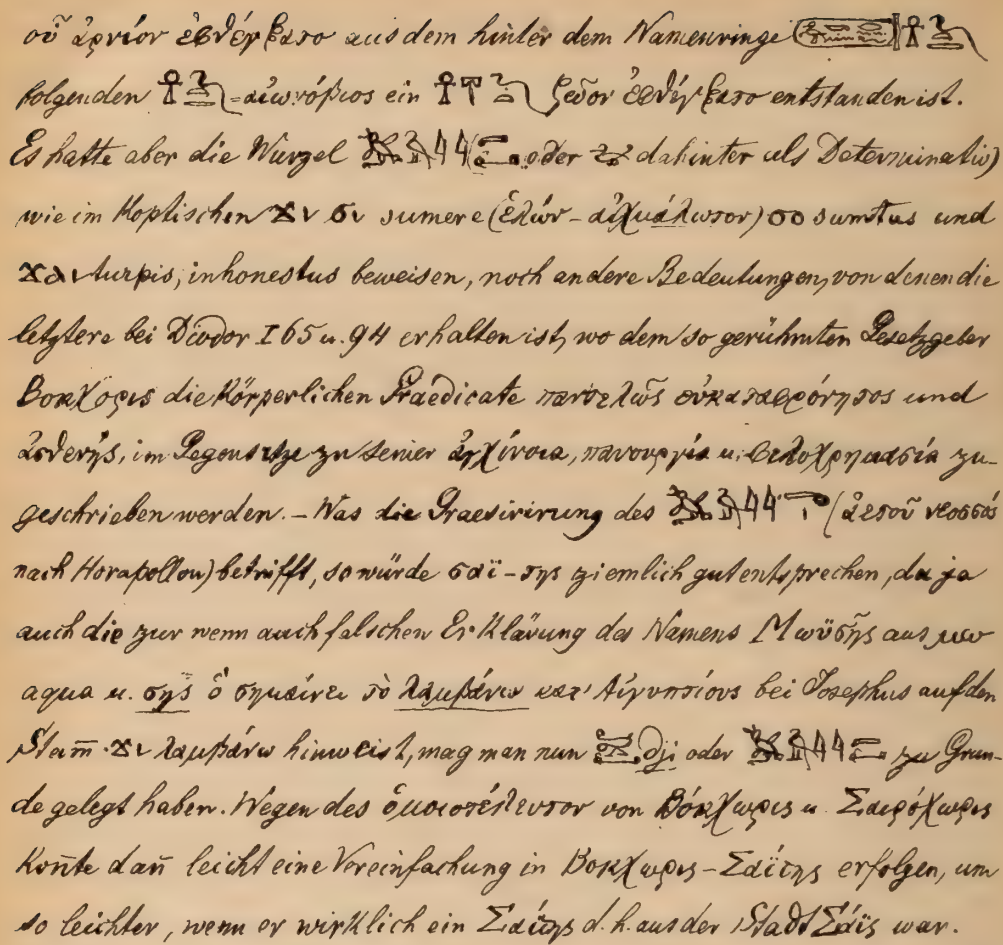 οὗ ἀρνίον ἐφθέγξατο aus dem hinter dem Namenringe
folgenden = αἰωνόβιος ein ζῶον ἐφθέγξατο entstanden ist.
Es hatte aber die Wurzel oder dahinter als Determinativ)
wie im Koptischen ϫⲓ ϭⲓ sumere (ἑλών - αἰχμάλωτον) ϭⲟ sumtus und
ϫⲁⲓ turpis, inhonestus beweisen, noch andere Bedeutungen, von denen die
letztere bei Diodor I 65 u. 94 erhalten ist, wo dem so gerühmten Gesetzgeber
Βοκχορις die Körperlichen Praedicate παντελῶς εὐκαταφρόνητος und
ἀσθενής, im Gegensatze zu seiner ἀγχίνοια, πανουργία u. φιλοχρηματία zu-
geschrieben werden. – Was die Graesirirung des (ἀετοῦ νεοσσός
nach Horapollon) betrifft, so würde σαϊ-της ziemlich gut entsprechen, da ja
auch die zur wenn auch falschen Erklärung des Namens Μωϋσῆς aus μω
aqua u. σῆς ὃ σημαίνει τὸ λαμβάνω κατ' Αἰγυπτίους bei Josephus auf den
Stam̅ ϫⲓ λαμβάνω hinweist, mag man nun dji oder zu Grun-
de gelegt haben. Wegen des ὁμοιοτέλευτον von Βόκχωρις u. Σαιρόχωρις
Kon̅te dan̅ leicht eine Vereinfachung in Βοκχωρις-Σαΐτης erfolgen, um
so leichter, wenn er wirklich ein Σαΐτης d. h. aus der Stadt Σάϊς war.